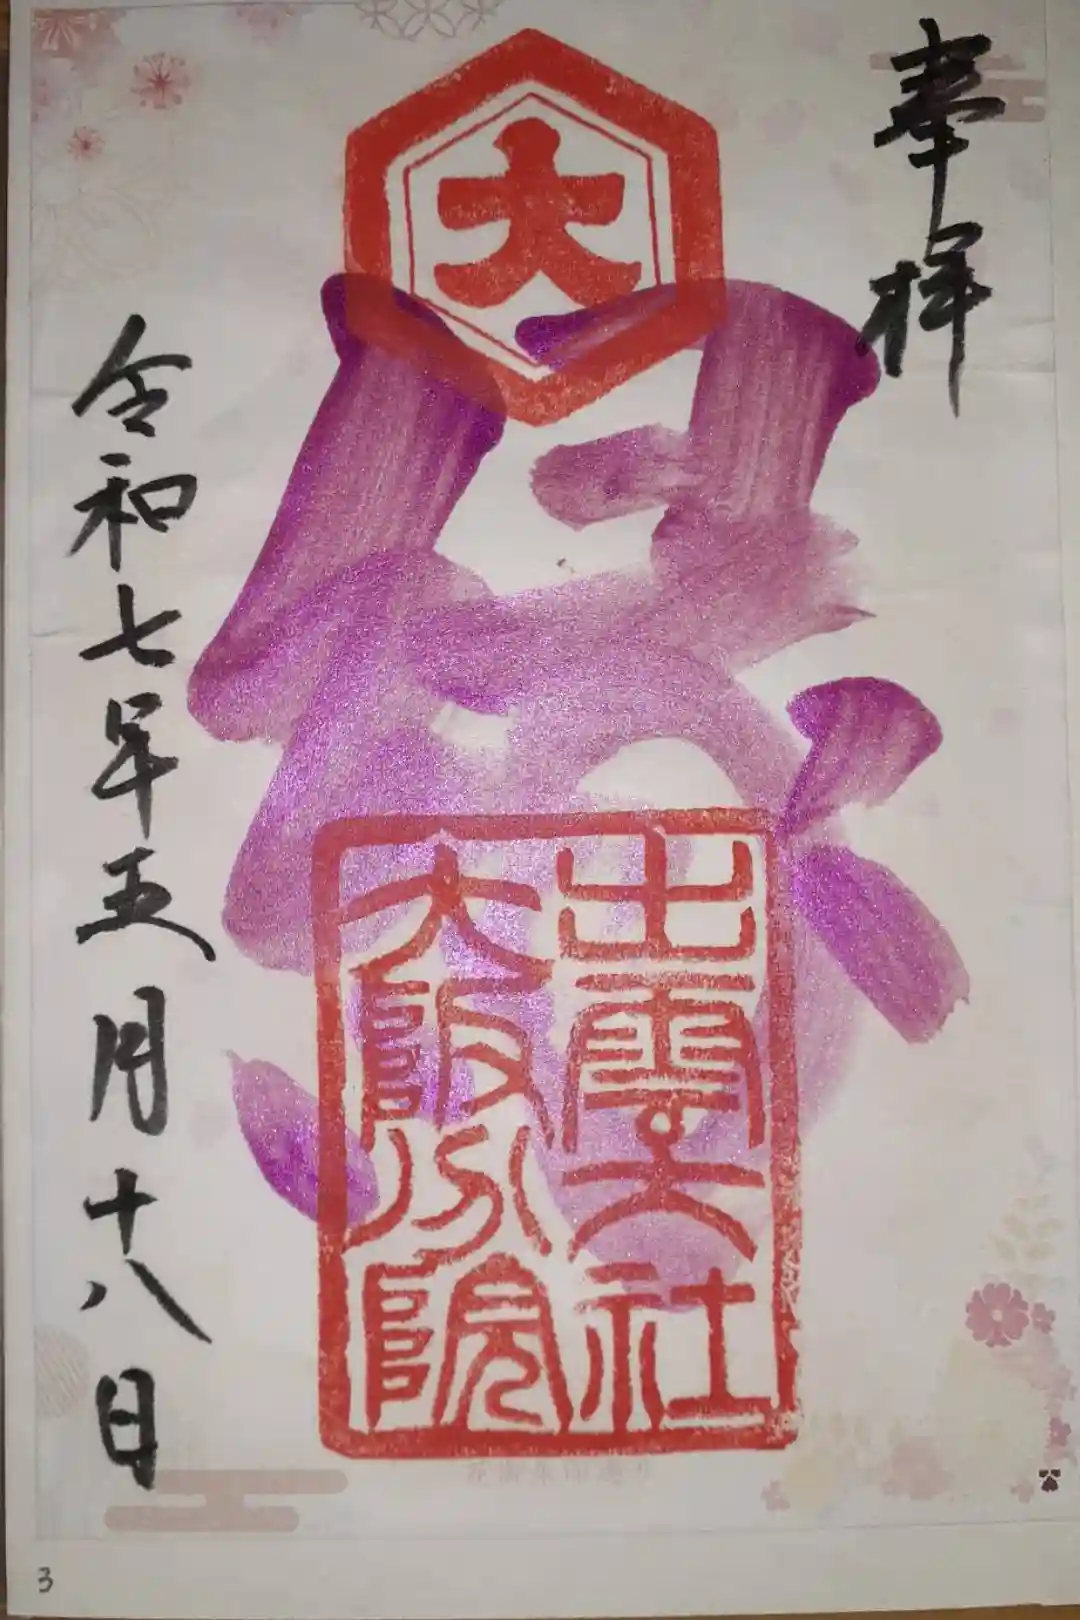 奉拝
大
縁
出雲大社
大阪分院
令和七年五月十八日
3